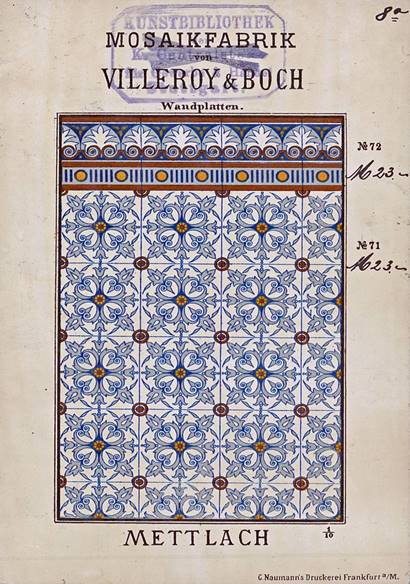 8a
KUNSTBIBLIOTHEK
MOSAIKFABRIK
von
VILLEROY & BOCH
Wandplatten.
№ 72
M 23.-
№ 71
M 23.-
METTLACH
1/10
C. Naumann's Druckerei Frankfurt a/M.